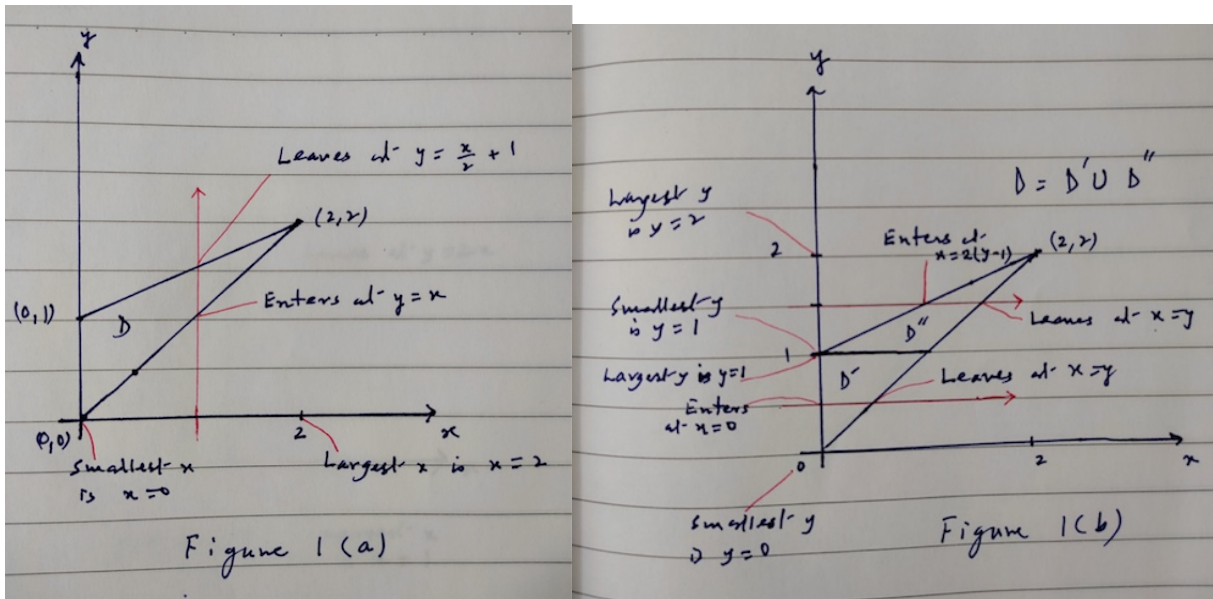 y
Leaves at y = x/2 + 1
(2,2)
Enters at y = x
(0,1)
D
(0,0)
2
x
Smallest x
is x=0
Largest x is x=2
Figure 1 (a)
y
D = D' U D''
Largest y
is y=2
2
Enters at
x=2(y-1)
(2,2)
Smallest y
is y=1
Leaves at x=y
D''
1
Largest y is y=1
D'
Leaves at x=y
Enters
at x=0
0
2
x
Smallest y
is y=0
Figure 1(b)